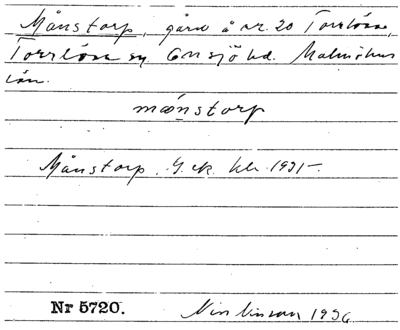 Månstorp, gård å nr. 20 Torrlösa,
Torrlösa sn Onsjö hd. Malmöhus
län.
månstorp
Månstorp. G. ek. kb. 1931-.
Nr 5720.
1936